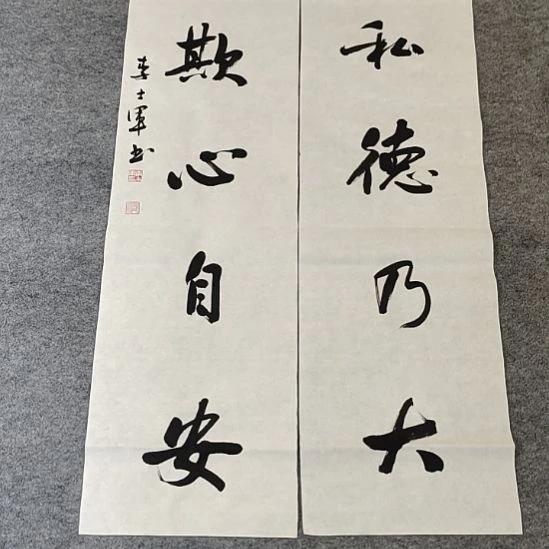 私德乃大
欺心自安
士軍书